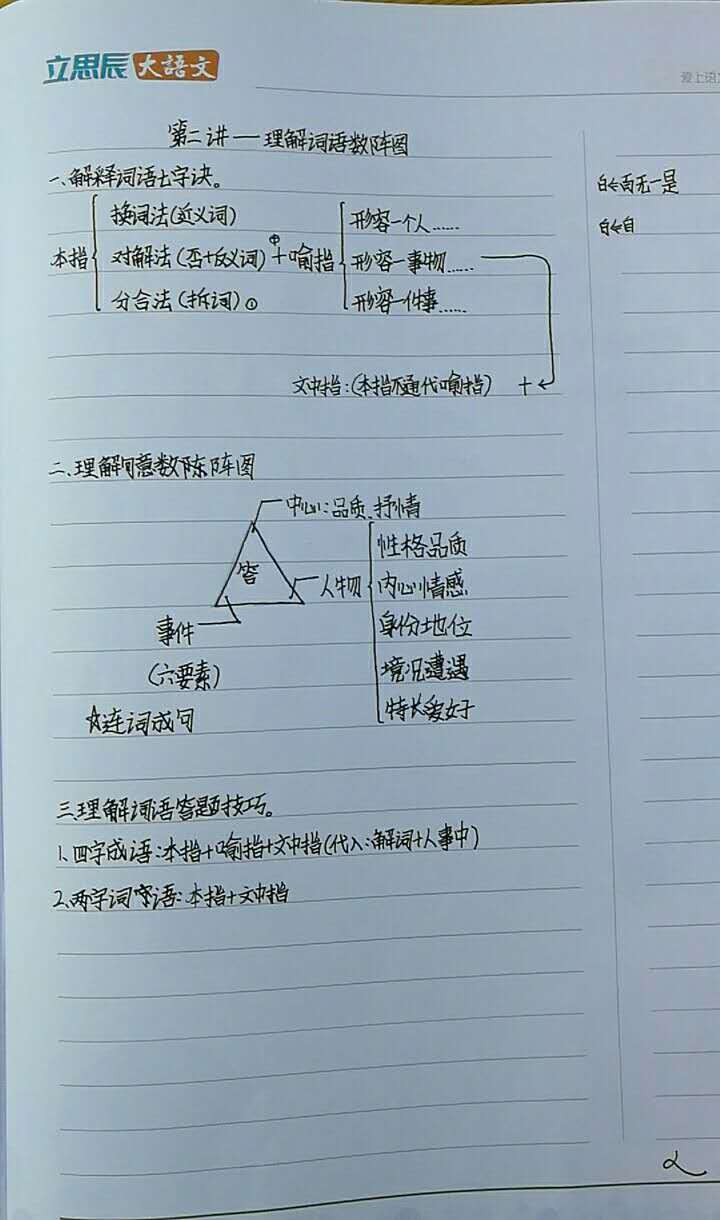 立思辰大語文
爱上语文
第二讲——理解词语数阵图
一、解释词语七字诀。
本指
换词法(近义词)
对解法(否+反义词)
分合法(拆词)①
④
+喻指
形容一个人……
形容一事物……
形容一件事……
文中指:(本指不通代喻指) +
百←百无一是
白←自
二、理解词意数陈阵图
中心:品质、抒情
答
人物
性格品质
内心情感
身份地位
境况遭遇
特长爱好
事件
(六要素)
☆连词成句
三、理解词语答题技巧。
1、四字成语:本指+喻指+文中指(代入:解词+人事中)
2、两字词语:本指+文中指